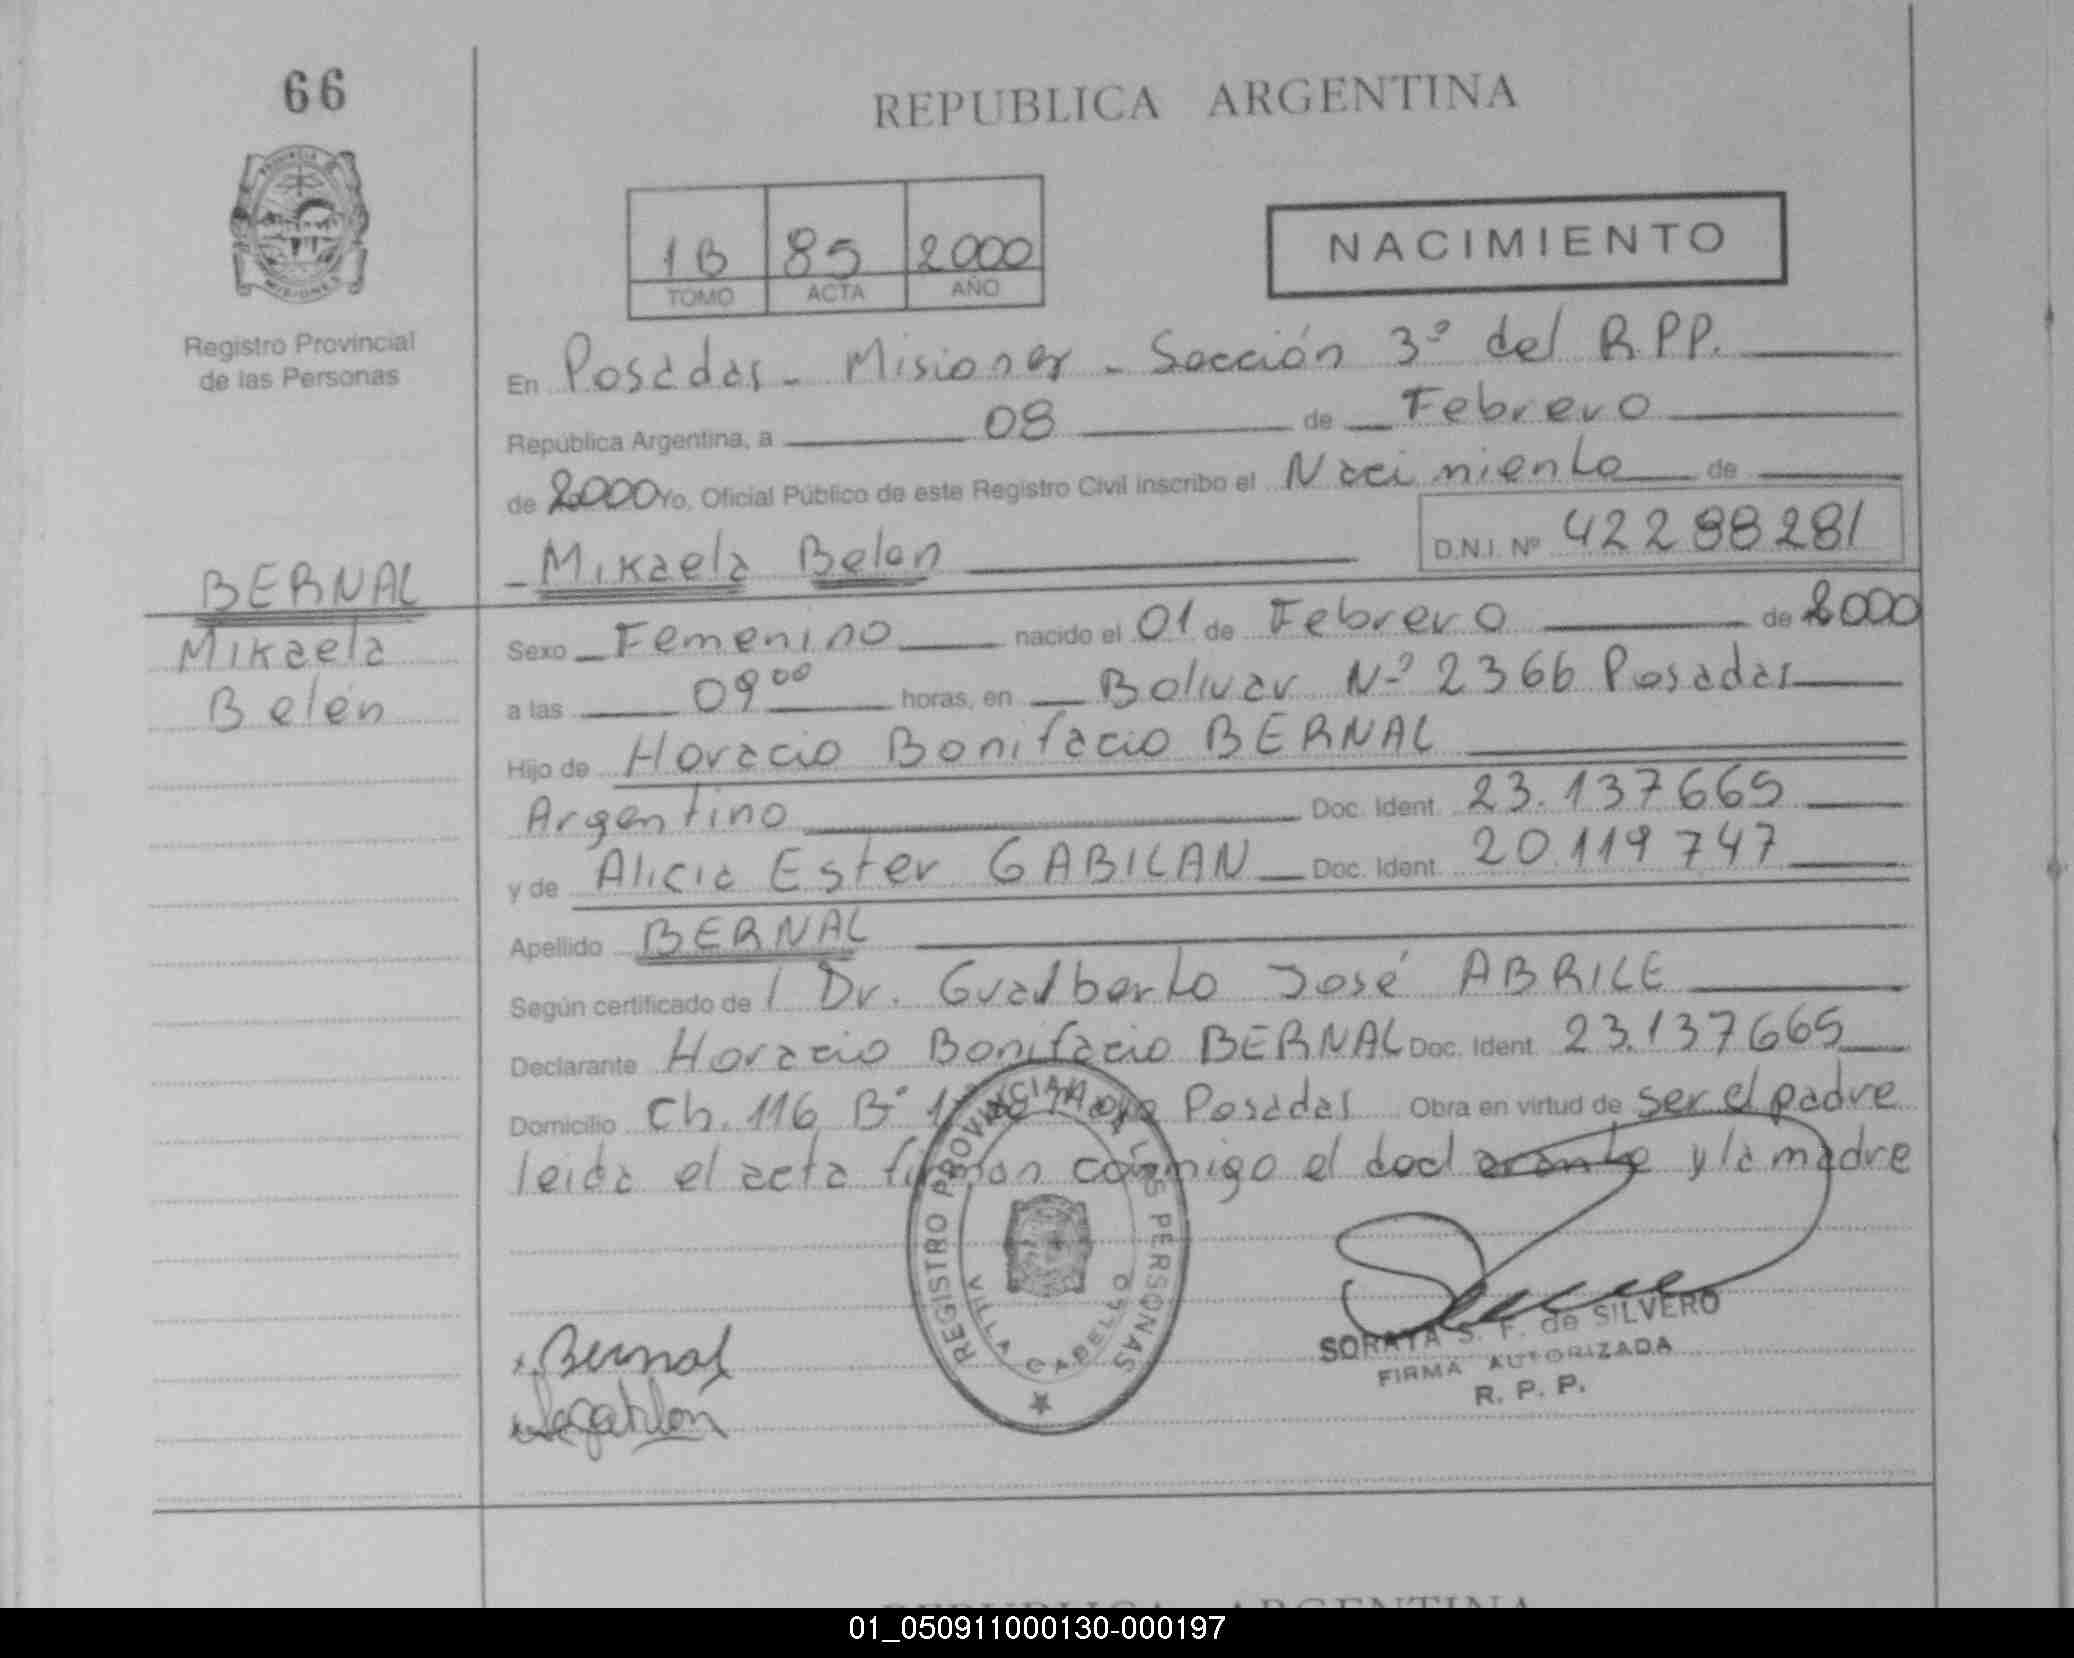 66
REPUBLICA ARGENTINA
PROVINCIA
MISIONES
Registro Provincial
de las Personas
1B 85 2000
TOMO ACTA AÑO
NACIMIENTO
En Posadas - Misiones - Sección 3º del R.P.P.
República Argentina, a 08 de Febrero
de 2000 Yo, Oficial Público de este Registro Civil inscribo el Nacimiento de
Mikaela Belen D.N.I. Nº 42298281
BERNAL
Mikaela
Belén
Sexo Femenino nacido el 01 de Febrero de 2000
a las 09⁰⁰ horas, en Bolivar Nº 2366 Posadas
Hijo de Horacio Bonifacio BERNAL
Argentino Doc. Ident. 23.137665
y de Alicia Ester GABILAN Doc. Ident. 20.119747
Apellido BERNAL
Según certificado de / Dr. Gualberto José ABRILE
Declarante Horacio Bonifacio BERNAL Doc. Ident. 23.137665
Domicilio Ch. 116 Bº Posadas Obra en virtud de ser el padre
leida el acta firman conmigo el declarante y la madre
REGISTRO PROVINCIAL DE LAS PERSONAS
VILLA CABELLO
Bernal
SORAYA S. F. de SILVERO
FIRMA AUTORIZADA
R. P. P.
REPUBLICA ARGENTINA
01_050911000130-000197